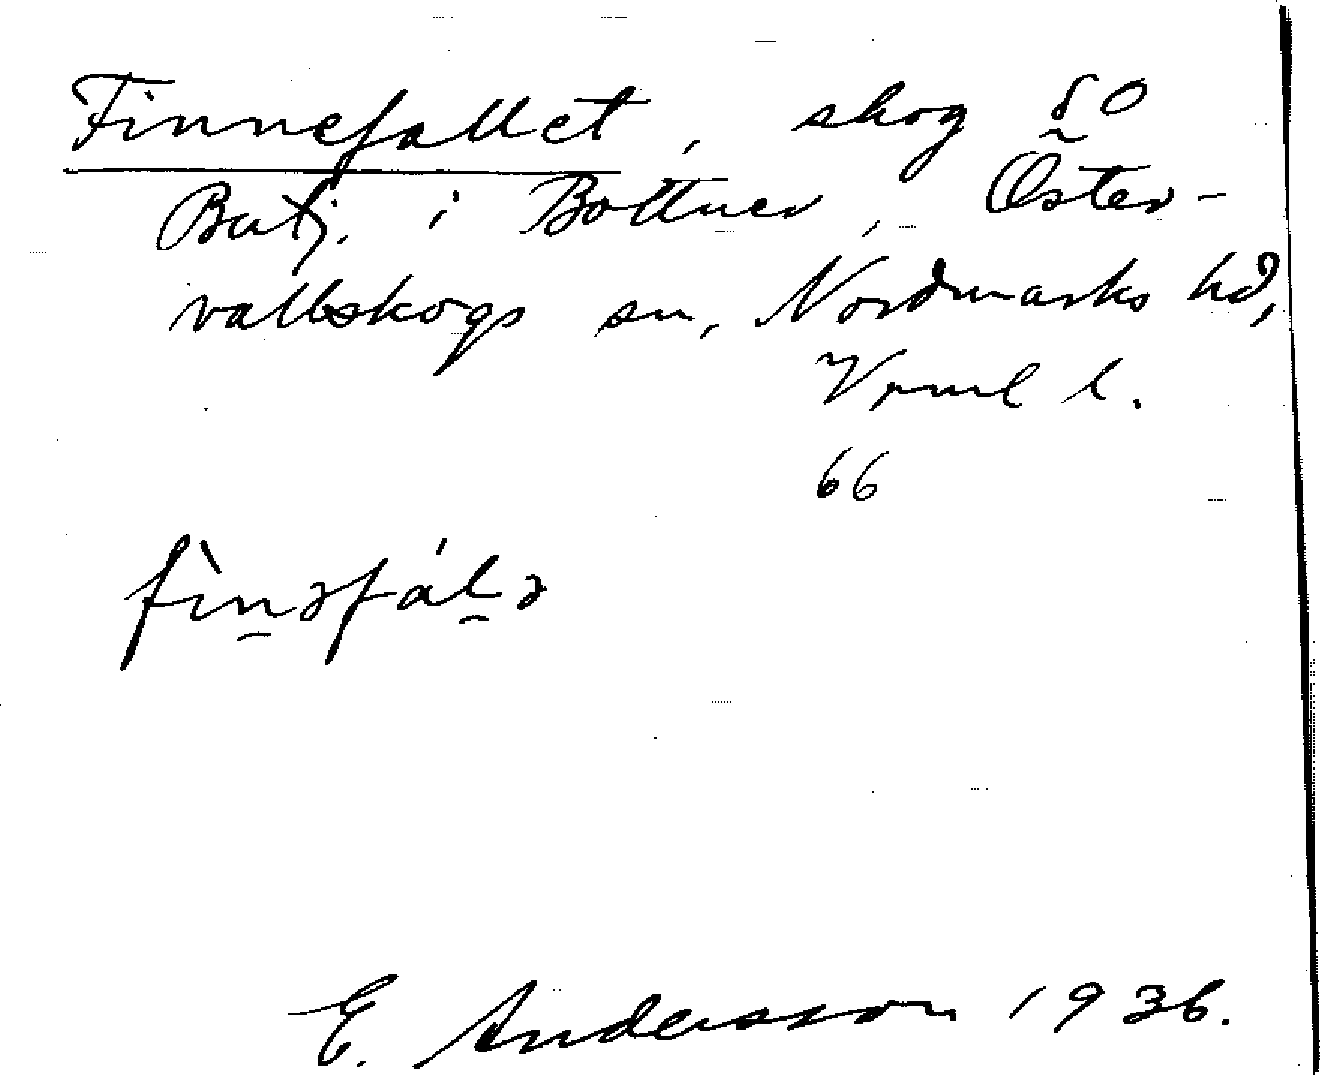 Finnefallet, skog SO
Butj. i Bottnen, Öster-
vallskogs sn, Nordmarks hd,
Vrml l.
66
fìnəfálə
E. Andersson 1936.